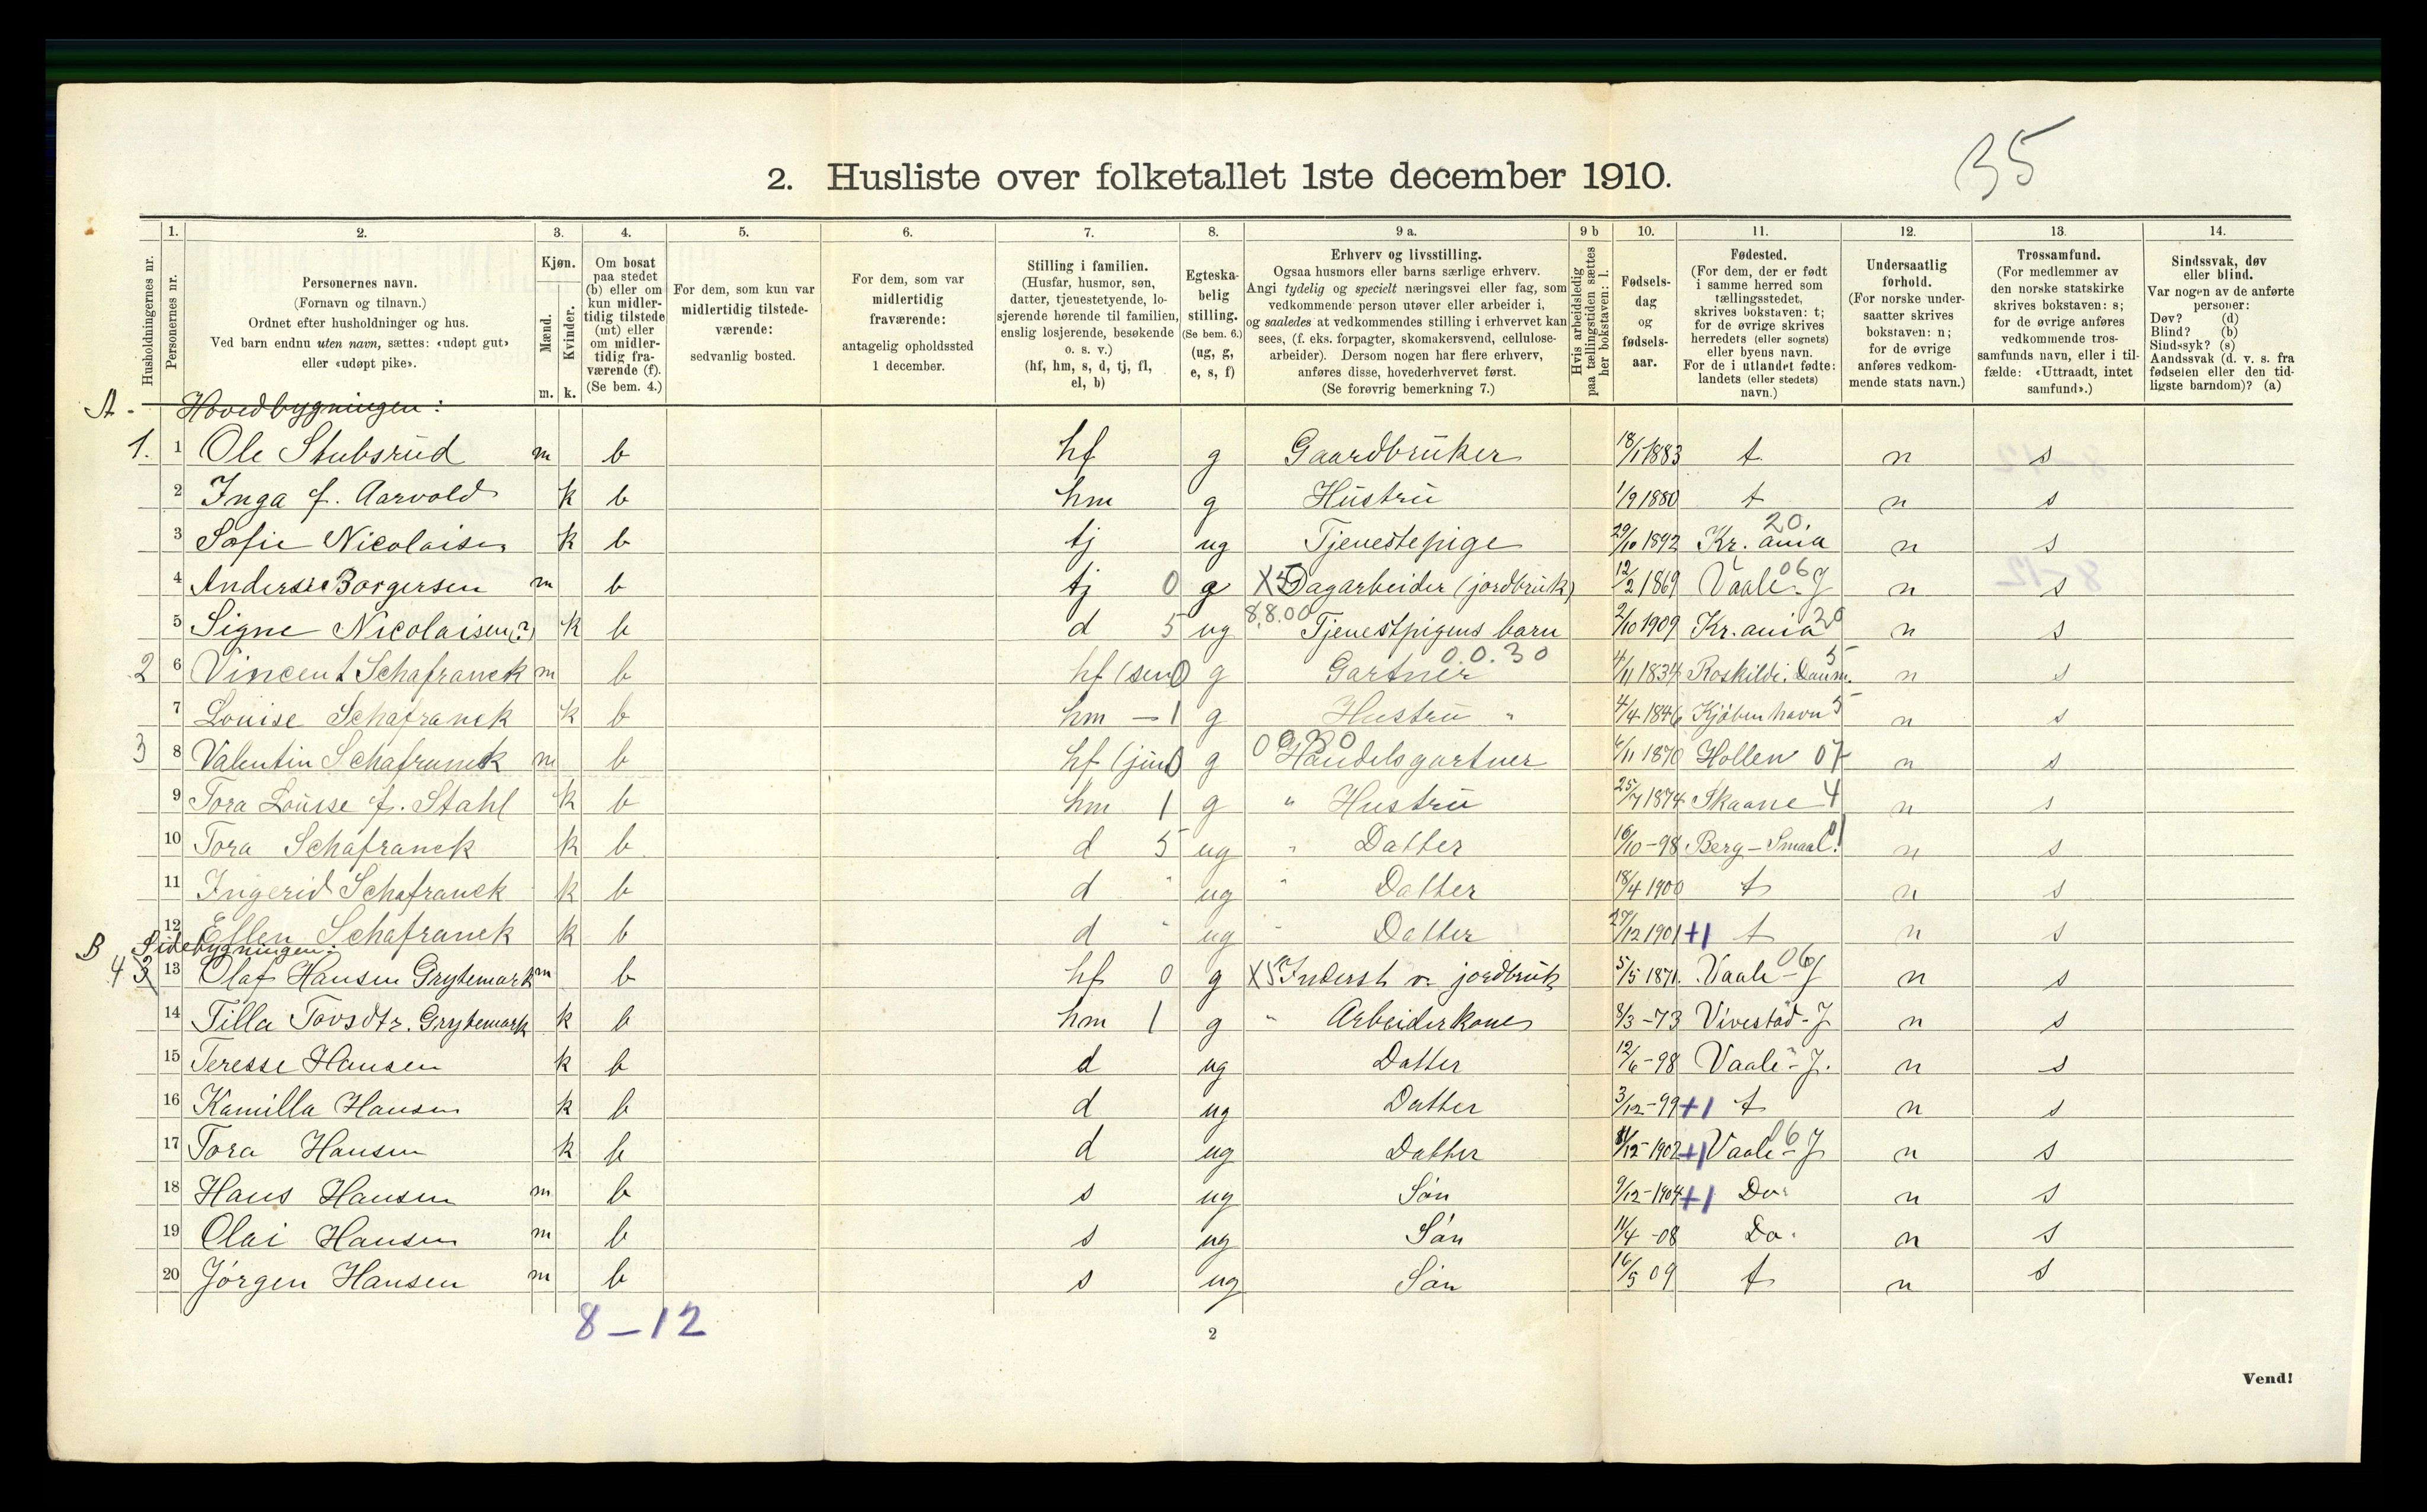 35
2. Husliste over folketallet 1ste december 1910.
Husholdningernes nr.
1. Personernes nr.
2. Personernes navn.
(Fornavn og tilnavn.)
Ordnet efter husholdninger og hus.
Ved barn endnu uten navn, sættes: «udøpt gut»
eller «udøpt pike».
3. Kjøn.
Mænd. Kvinder.
m. k.
4. Om bosat
paa stedet
(b) eller om
kun midler-
tidig tilstede
(mt) eller
om midler-
tidig fra-
værende (f).
(Se bem. 4.)
5. For dem, som kun var
midlertidig tilstede-
værende:
sedvanlig bosted.
6. For dem, som var
midlertidig
fraværende:
antagelig opholdssted
1 december.
7. Stilling i familien.
(Husfar, husmor, søn,
datter, tjenestetyende, lo-
sjerende hørende til familien,
enslig losjerende, besøkende
o. s. v.)
(hf, hm, s, d, tj, fl,
el, b)
8. Egteska-
belig
stilling.
(Se bem. 6.)
(ug, g,
e, s, f)
9 a. Erhverv og livsstilling.
Ogsaa husmors eller barns særlige erhverv.
Angi tydelig og specielt næringsvei eller fag, som
vedkommende person utøver eller arbeider i,
og saaledes at vedkommendes stilling i erhvervet kan
sees, (f. eks. forpagter, skomakersvend, cellulose-
arbeider). Dersom nogen har flere erhverv,
anføres disse, hovederhvervet først.
(Se forøvrig bemerkning 7.)
9 b Hvis arbeidsledig
paa tællingstiden sættes
her bokstaven: l.
10. Fødsels-
dag
og
fødsels-
aar.
11. Fødested.
(For dem, der er født
i samme herred som
tællingsstedet,
skrives bokstaven: t;
for de øvrige skrives
herredets (eller sognets)
eller byens navn.
For de i utlandet fødte:
landets (eller stedets)
navn.)
12. Undersaatlig
forhold.
(For norske under-
saatter skrives
bokstaven: n;
for de øvrige
anføres vedkom-
mende stats navn.)
13. Trossamfund.
(For medlemmer av
den norske statskirke
skrives bokstaven: s;
for de øvrige anføres
vedkommende tros-
samfunds navn, eller i til-
fælde: «Uttraadt, intet
samfund».)
14. Sindssvak, døv
eller blind.
Var nogen av de anførte
personer:
Døv? (d)
Blind? (b)
Sindssyk? (s)
Aandssvak (d. v. s. fra
fødselen eller den tid-
ligste barndom)? (a)
A - Hovedbygningen:
1. 1 Ole Stubsrud m b hf g Gaardbruker 18/1 1883 t n s
2 Inga f. Aarvold k b hm g Hustru 1/9 1880 t n s
3 Sofie Nicolaisen k b tj ug Tjenestepige 29/10 1892 Kr. ania 20. n s
4 Anders Borgersen m b tj 0 g X5 Dagarbeider (jordbruk) 12/2 1869 Vaale - J 06 n s
5 Signe Nicolaisen (?) k b d 5 ug 8.8.00 Tjenestpigens barn 2/10 1909 Kr. ania 20 n s
2 6 Vincent Schafranek m b hf (sen) 0 g Gartner 0.0.30 4/11 1834 Roskilde. Danm. 5 n s
7 Louise Schafranek k b hm - 1 g Hustru " 4/4 1846 Kjøbenhavn 5 n s
3 8 Valentin Schafranek m b hf (jun) 0 g 0030 Handelsgartner 4/11 1870 Hollen 07 n s
9 Tora Louise f. Stahl k b hm 1 g " Hustru 25/7 1874 Skaane 4 n s
10 Tora Schafranek k b d 5 ug " Datter 16/10 -98 Berg - Smaal. 01 n s
11 Ingerid Schafranek k b d " ug " Datter 18/4 1900 t n s
12 Ellen Schafranek k b d " ug " Datter 27/12 1901 +1 t n s
B Sidebygningen:
4 3 13 Olaf Hansen Grytemark m b hf 0 g X5 Inderst v. jordbruk 5/5 1871. Vaale - J 06 n s
14 Tilla Tovsdtr. Grytemark k b hm 1 g " Arbeiderkone 8/3 -73 Vivestad - J n s
15 Teresse Hansen k b d ug Datter 12/6 -98 Vaale - J. n s
16 Kamilla Hansen k b d ug Datter 3/12 -99 +1 t n s
17 Tora Hansen k b d ug Datter 11/12 -1902 +1 Vaale - J 06 n s
18 Hans Hansen m b s ug Søn 9/12 -1904 +1 Do. n s
19 Olai Hansen m b s ug Søn 11/4 -08 Do. n s
20 Jørgen Hansen m b s ug Søn 16/5 09 t n s
8-12
2
Vend!